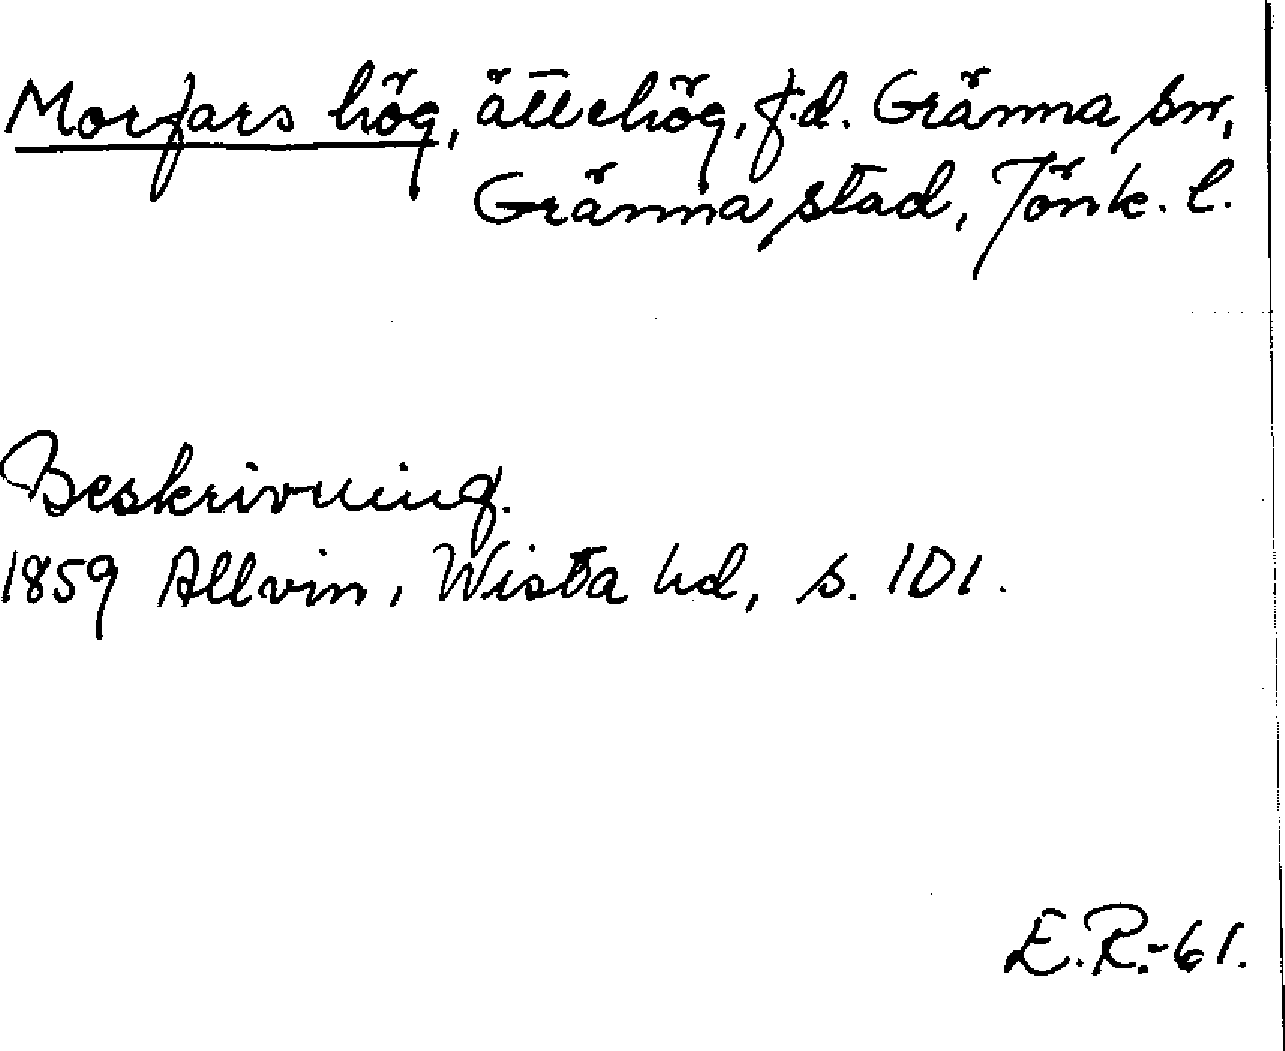 Morfars hög, ättehög, f.d. Gränna sn,
Gränna stad, Jönk. l.
Beskrivning.
1859 Allvin, Wista hd, s. 101.
E.R.-61.